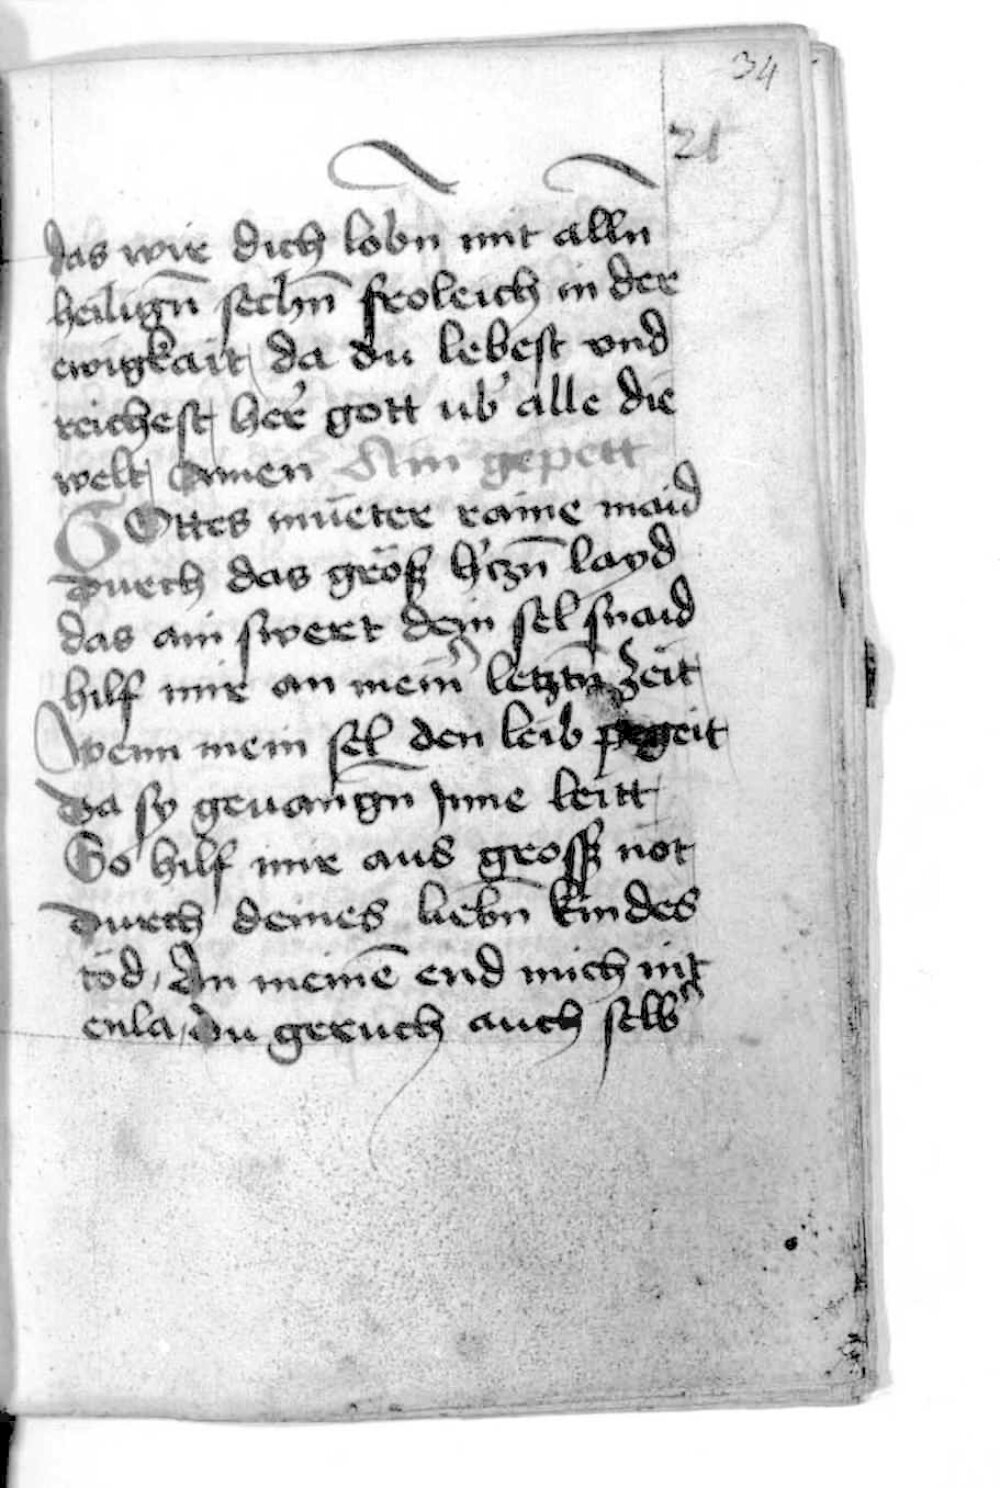 34
21
das wir dich lobn mit alln
heilign̄ sechn̄ froleich in der
ewigkait / da du lebest vnd
reichest / her gott ub' alle die
welt / Amen Ain gepett
GOttes mueter raine maid
durch das gröss h'czn̄ layd
das ain swert dein sel snaid
hilf mir an mein' letztn̄ zeit /
Wenn mein sel den leib begeit
Da sy geuangn̄ Inne leitt /
So hilf mir aus gross not /
durch deines liebn̄ kindes
töd / An meinē end mich nit
enla / du geruch auch selb'